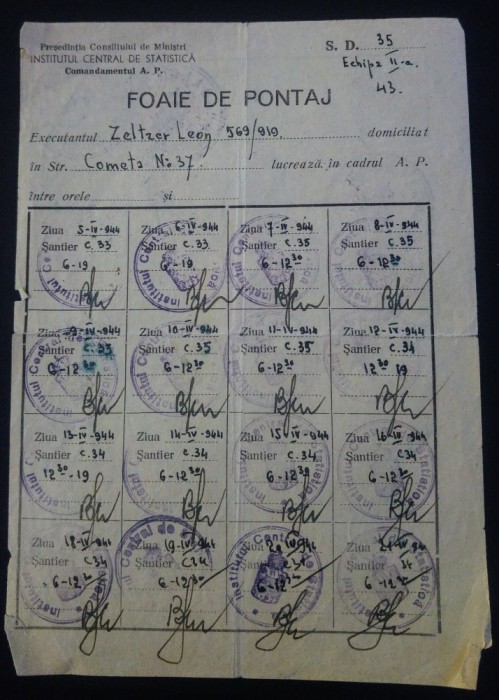 Preşedinţia Consiliului de Miniştri
INSTITUTUL CENTRAL DE STATISTICĂ
Comandamentul A. P.
S. D. 35
Echipa II-a.
43.
FOAIE DE PONTAJ
Executantul Zeltzer Leon 569/919. domiciliat
în Str. Cometa No 37. lucrează în cadrul A. P.
între orele şi
Ziua 5-IV-944
Şantier C. 33
6-19
Ziua 6-IV-944
Şantier C. 33
6-19
Ziua 7-IV-944
Şantier C. 35
6-12 30
Ziua 8-IV-944
Şantier C. 35
6-12 30
Ziua 9-IV-944
Şantier C. 35
6-12 30
Ziua 10-IV-944
Şantier C. 35
6-12 30
Ziua 11-IV-944
Şantier C. 35
6-12 30
Ziua 12-IV-944
Şantier C. 34
12 30 19
Ziua 13-IV-944
Şantier C. 34
12 30-19
Ziua 14-IV-944
Şantier C. 34
6-12 30
Ziua 15-IV-944
Şantier C. 34
6-12 30
Ziua 16-IV-944
Şantier C34
6-12
Ziua 18-IV-944
Şantier C34
6-12
Ziua 19-IV-944
Şantier C34
6-12 30
Ziua 20-IV-944
Şantier
6-12 30
Ziua 21-IV-944
Şantier 34
6-12
Institutul Central de Statistică